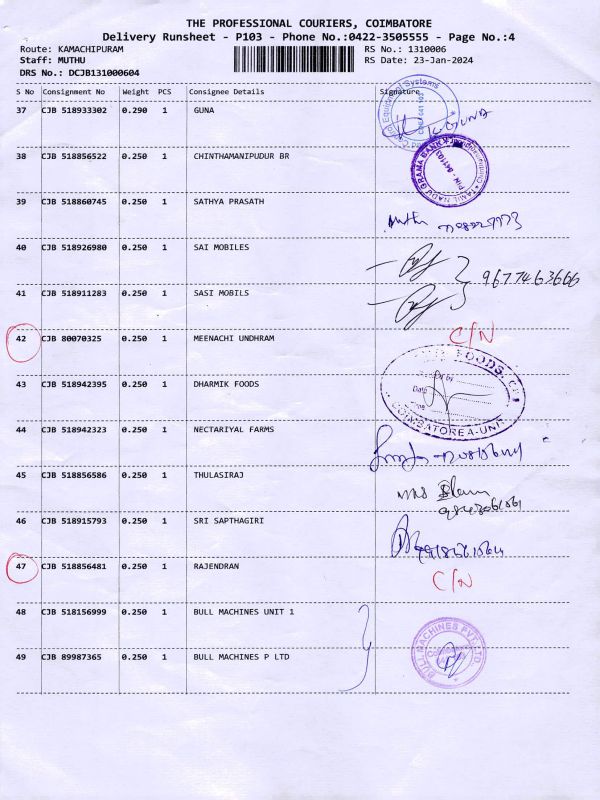 THE PROFESSIONAL COURIERS, COIMBATORE
Delivery Runsheet - P103 - Phone No.:0422-3505555 - Page No.:4
Route: KAMACHIPURAM RS No.: 1310006
Staff: MUTHU RS Date: 23-Jan-2024
DRS No.: DCJB131000604
S No Consignment No Weight PCS Consignee Details Signature
37 CJB 518933302 0.290 1 GUNA
38 CJB 518856522 0.250 1 CHINTHAMANIPUDUR BR
39 CJB 518860745 0.250 1 SATHYA PRASATH
40 CJB 518926980 0.250 1 SAI MOBILES
9677463666
41 CJB 518911283 0.250 1 SASI MOBILS
42 CJB 80070325 0.250 1 MEENACHI UNDHRAM C/N
43 CJB 518942395 0.250 1 DHARMIK FOODS
COIMBATORE A-UNIT
44 CJB 518942323 0.250 1 NECTARIYAL FARMS
45 CJB 518856586 1 0.250 THULASIRAJ
46 CJB 518915793 0.250 1 SRI SAPTHAGIRI
47 CJB 518856481 0.250 1 RAJENDRAN C/N
48 CJB 518156999 0.250 1 BULL MACHINES UNIT 1
BULL MACHINES PVT. LTD.
49 CJB 89987365 0.250 1 BULL MACHINES P LTD